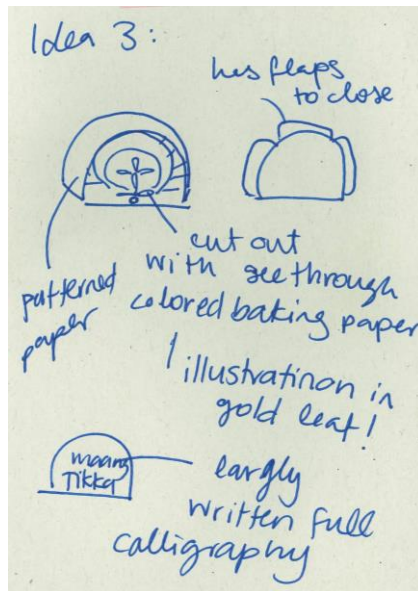 Idea 3:
has flaps
to close
patterned
paper
cut out
with see through
colored baking paper
illustratinon in
gold leaf!
maang
Tikka
largly
written full
calligraphy